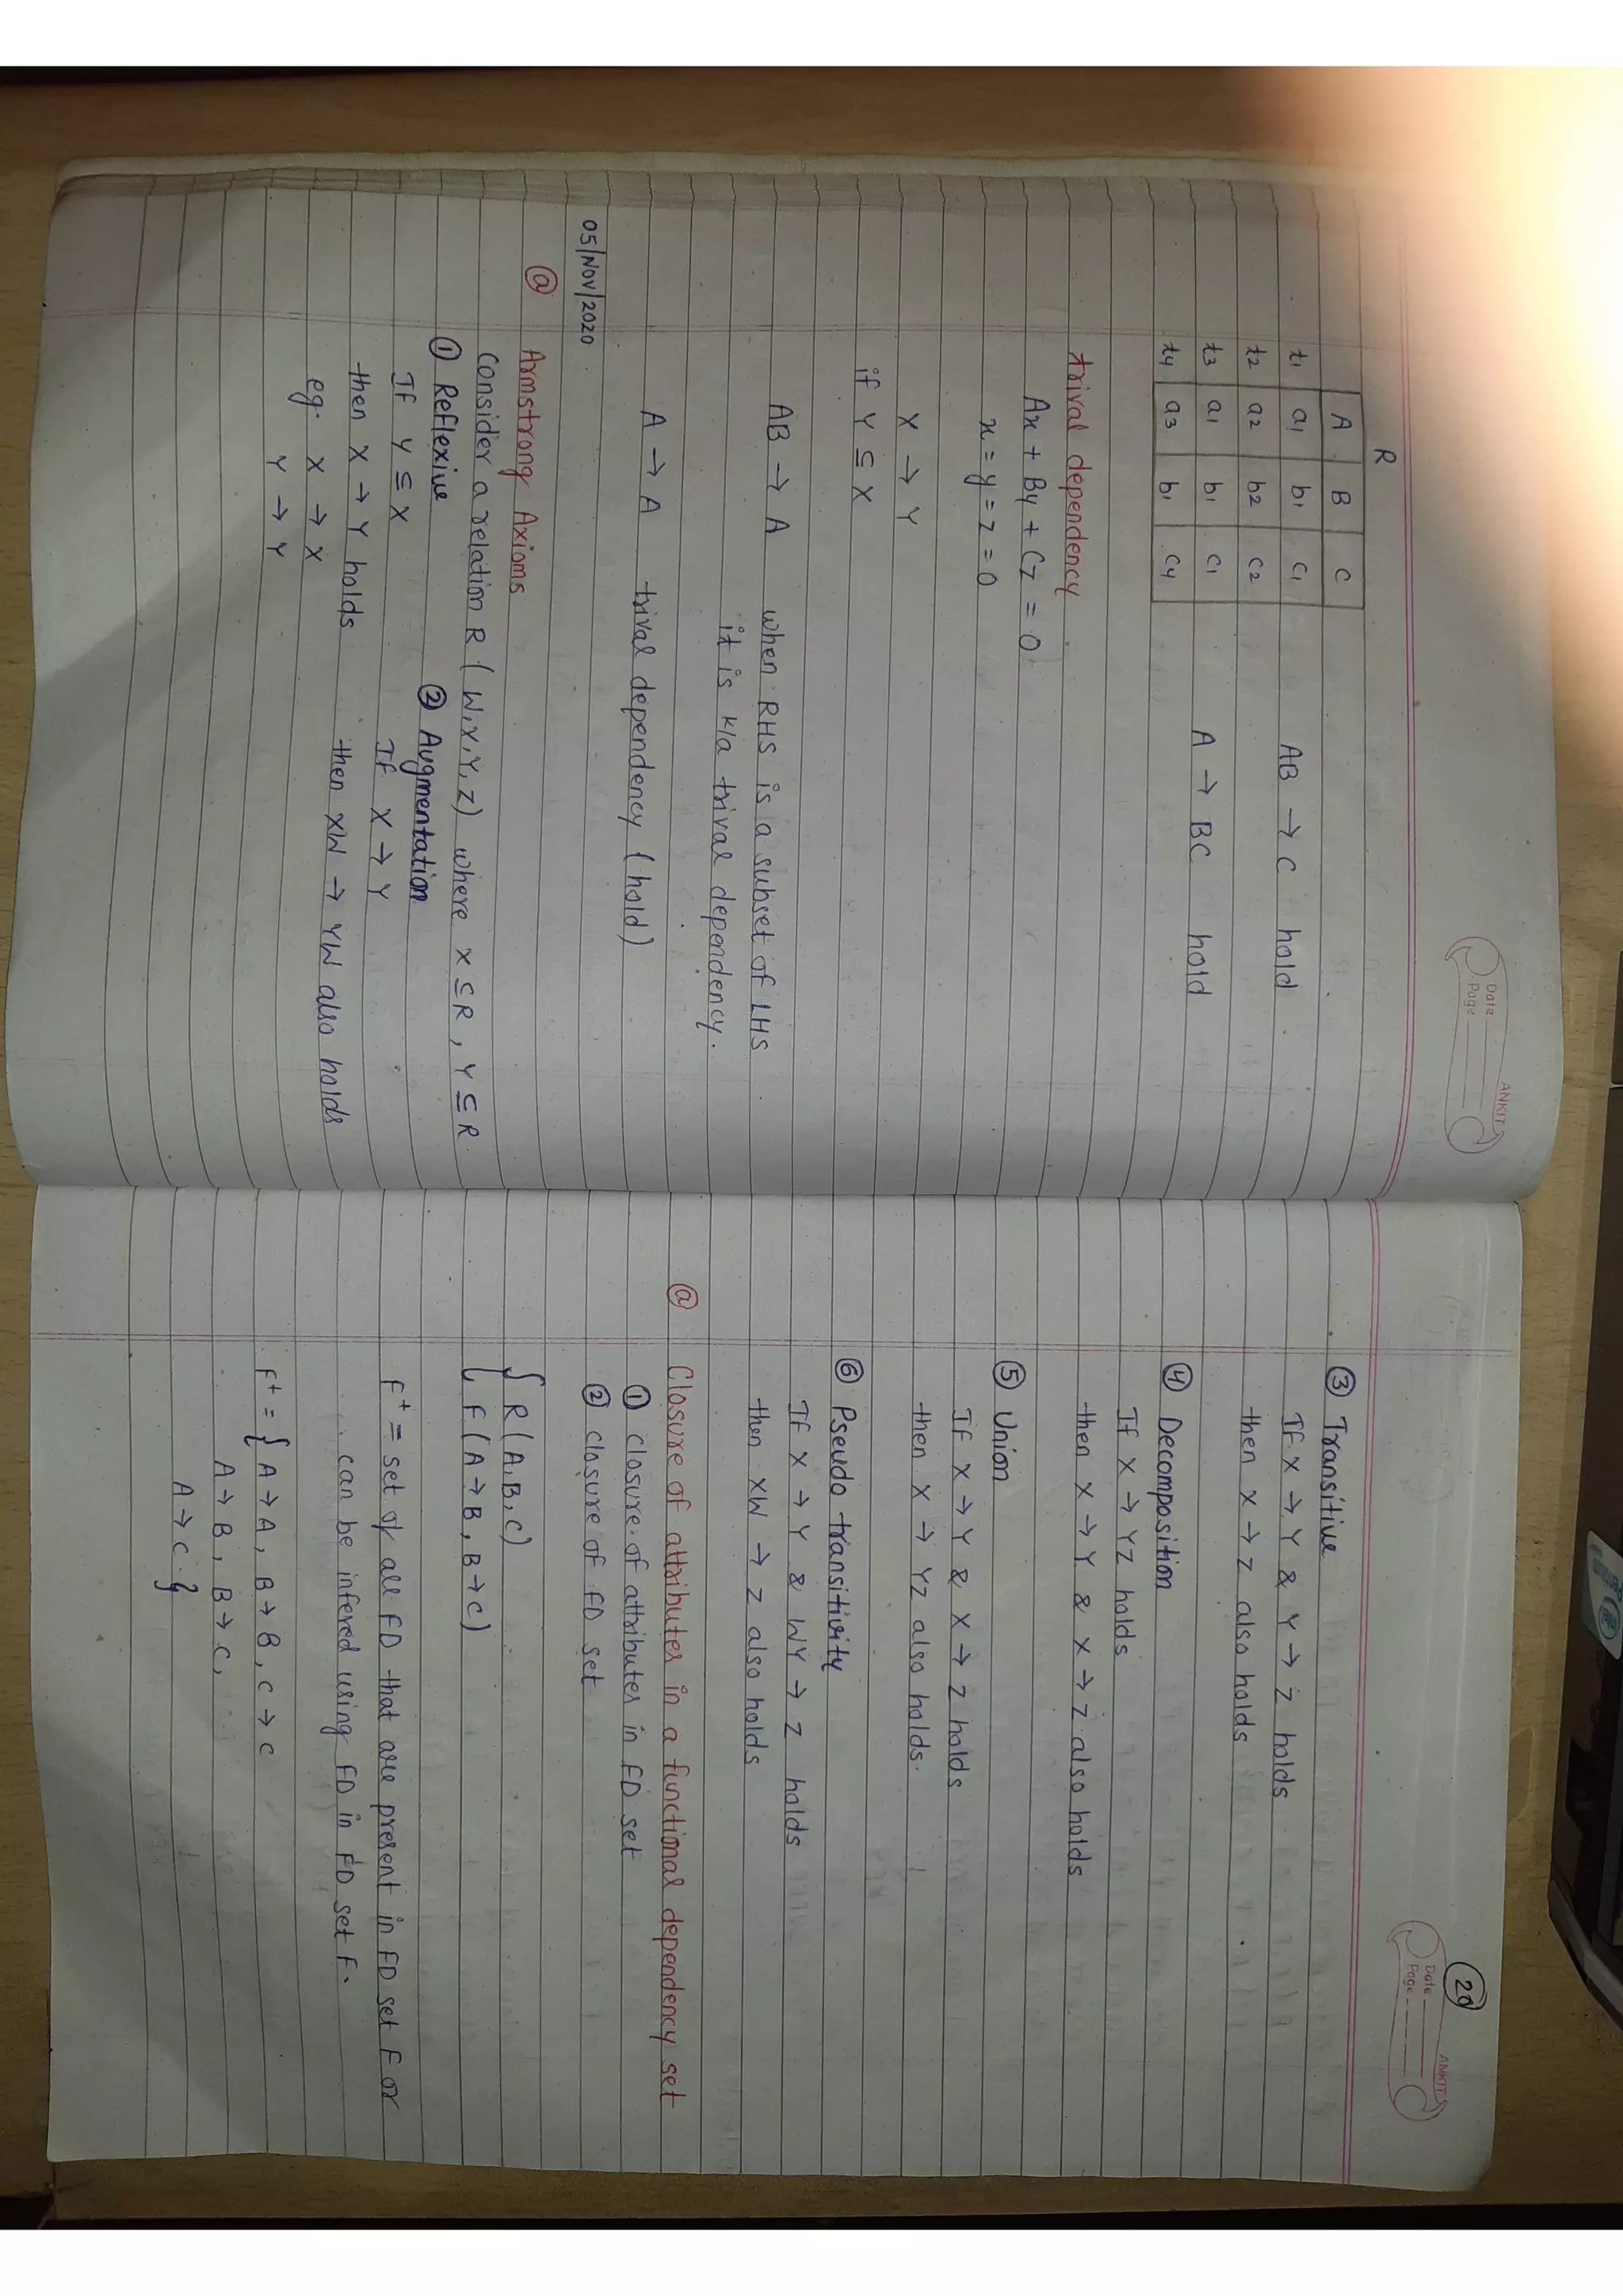 ANKIT
Date
Page
R
A B C
t1 a1 b1 c1 AB → C hold
t2 a2 b2 c2
t3 a1 b1 c1 A → BC hold
t4 a3 b1 c4
trival dependency
Ax + By + Cz = 0
x = y = z = 0
X → Y
if Y ⊆ X
AB → A when RHS is a subset of LHS
it is k/a trival dependency.
A → A trival dependency (hold)
05/Nov/2020
@ Armstrong Axioms
Consider a relation R (W,X,Y,Z) where X ⊆ R, Y ⊆ R
① Reflexive ② Augmentation
If Y ⊆ X If X → Y
then X → Y holds then XW → YW also holds
eg. X → X
Y → Y
20
ANKIT
Date
Page
③ Transitive
If X → Y & Y → Z holds
then X → Z also holds
④ Decomposition
If X → YZ holds
then X → Y & X → Z also holds
⑤ Union
If X → Y & X → Z holds
then X → YZ also holds.
⑥ Pseudo transitivity
If X → Y & WY → Z holds
then XW → Z also holds
@ Closure of attributes in a functional dependency set
① closure of attributes in FD set
② closure of FD set
{ R (A,B,C)
{ F (A→B, B→C)
F⁺ = set of all FD that are present in FD set F or
can be infered using FD in FD set F.
F⁺ = { A → A, B → B, C → C
A → B, B → C,
A → C. }